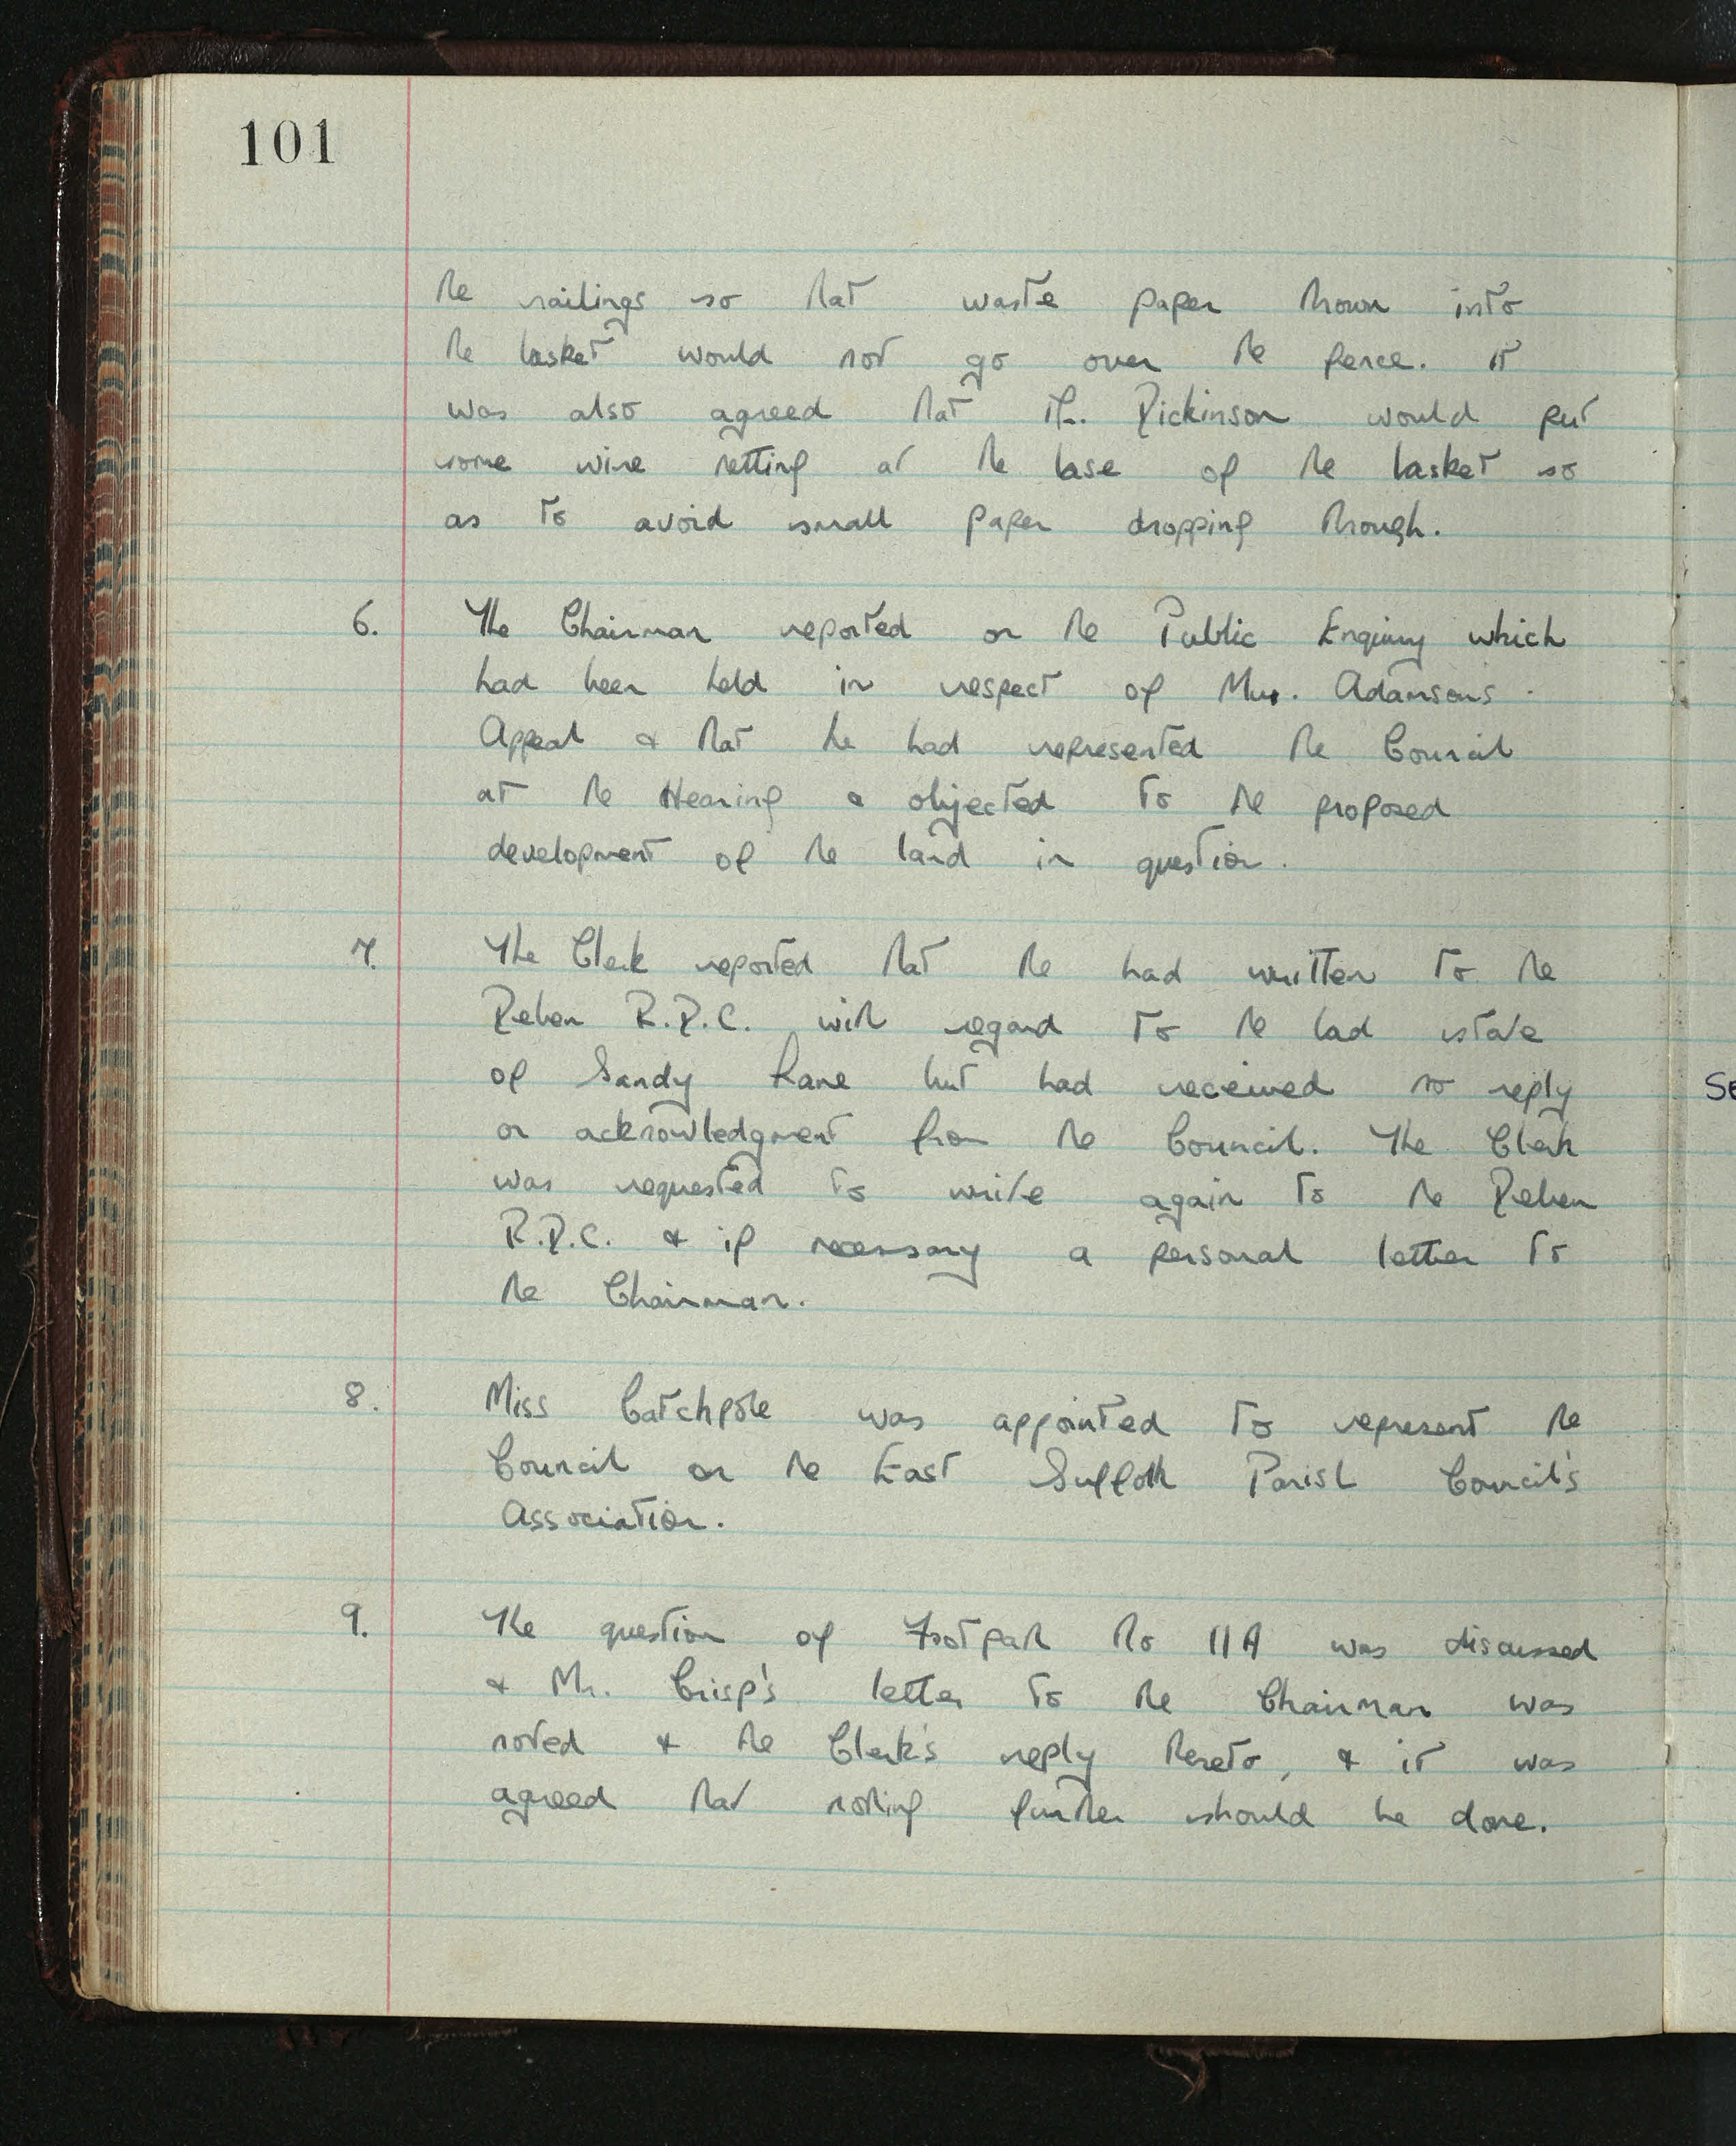 101
the railings so that waste paper thrown into
the basket would not go over the fence. it
was also agreed that Mr. Dickinson would put
some wire netting at the base of the basket so
as to avoid small paper dropping through.
6. The Chairman reported on the Public Enquiry which
had been held in respect of Mrs. Adamsons
Appeal & that he had represented the Council
at the Hearing & objected to the proposed
development of the land in question.
7. The Clerk reported that he had written to the
Deben R.D.C. with regard to the bad state
of Sandy Lane but had received no reply
or acknowledgment from the Council. The Clerk
was requested to write again to the Deben
R.D.C. & if necessary a personal letter to
the Chairman.
8. Miss Catchpole was appointed to represent the
Council on the East Suffolk Parish Council's
Association.
9. The question of Footpath No 11A was discussed
& Mr. Crisp's letter to the Chairman was
noted & the Clerk's reply thereto, & it was
agreed that nothing further should be done.